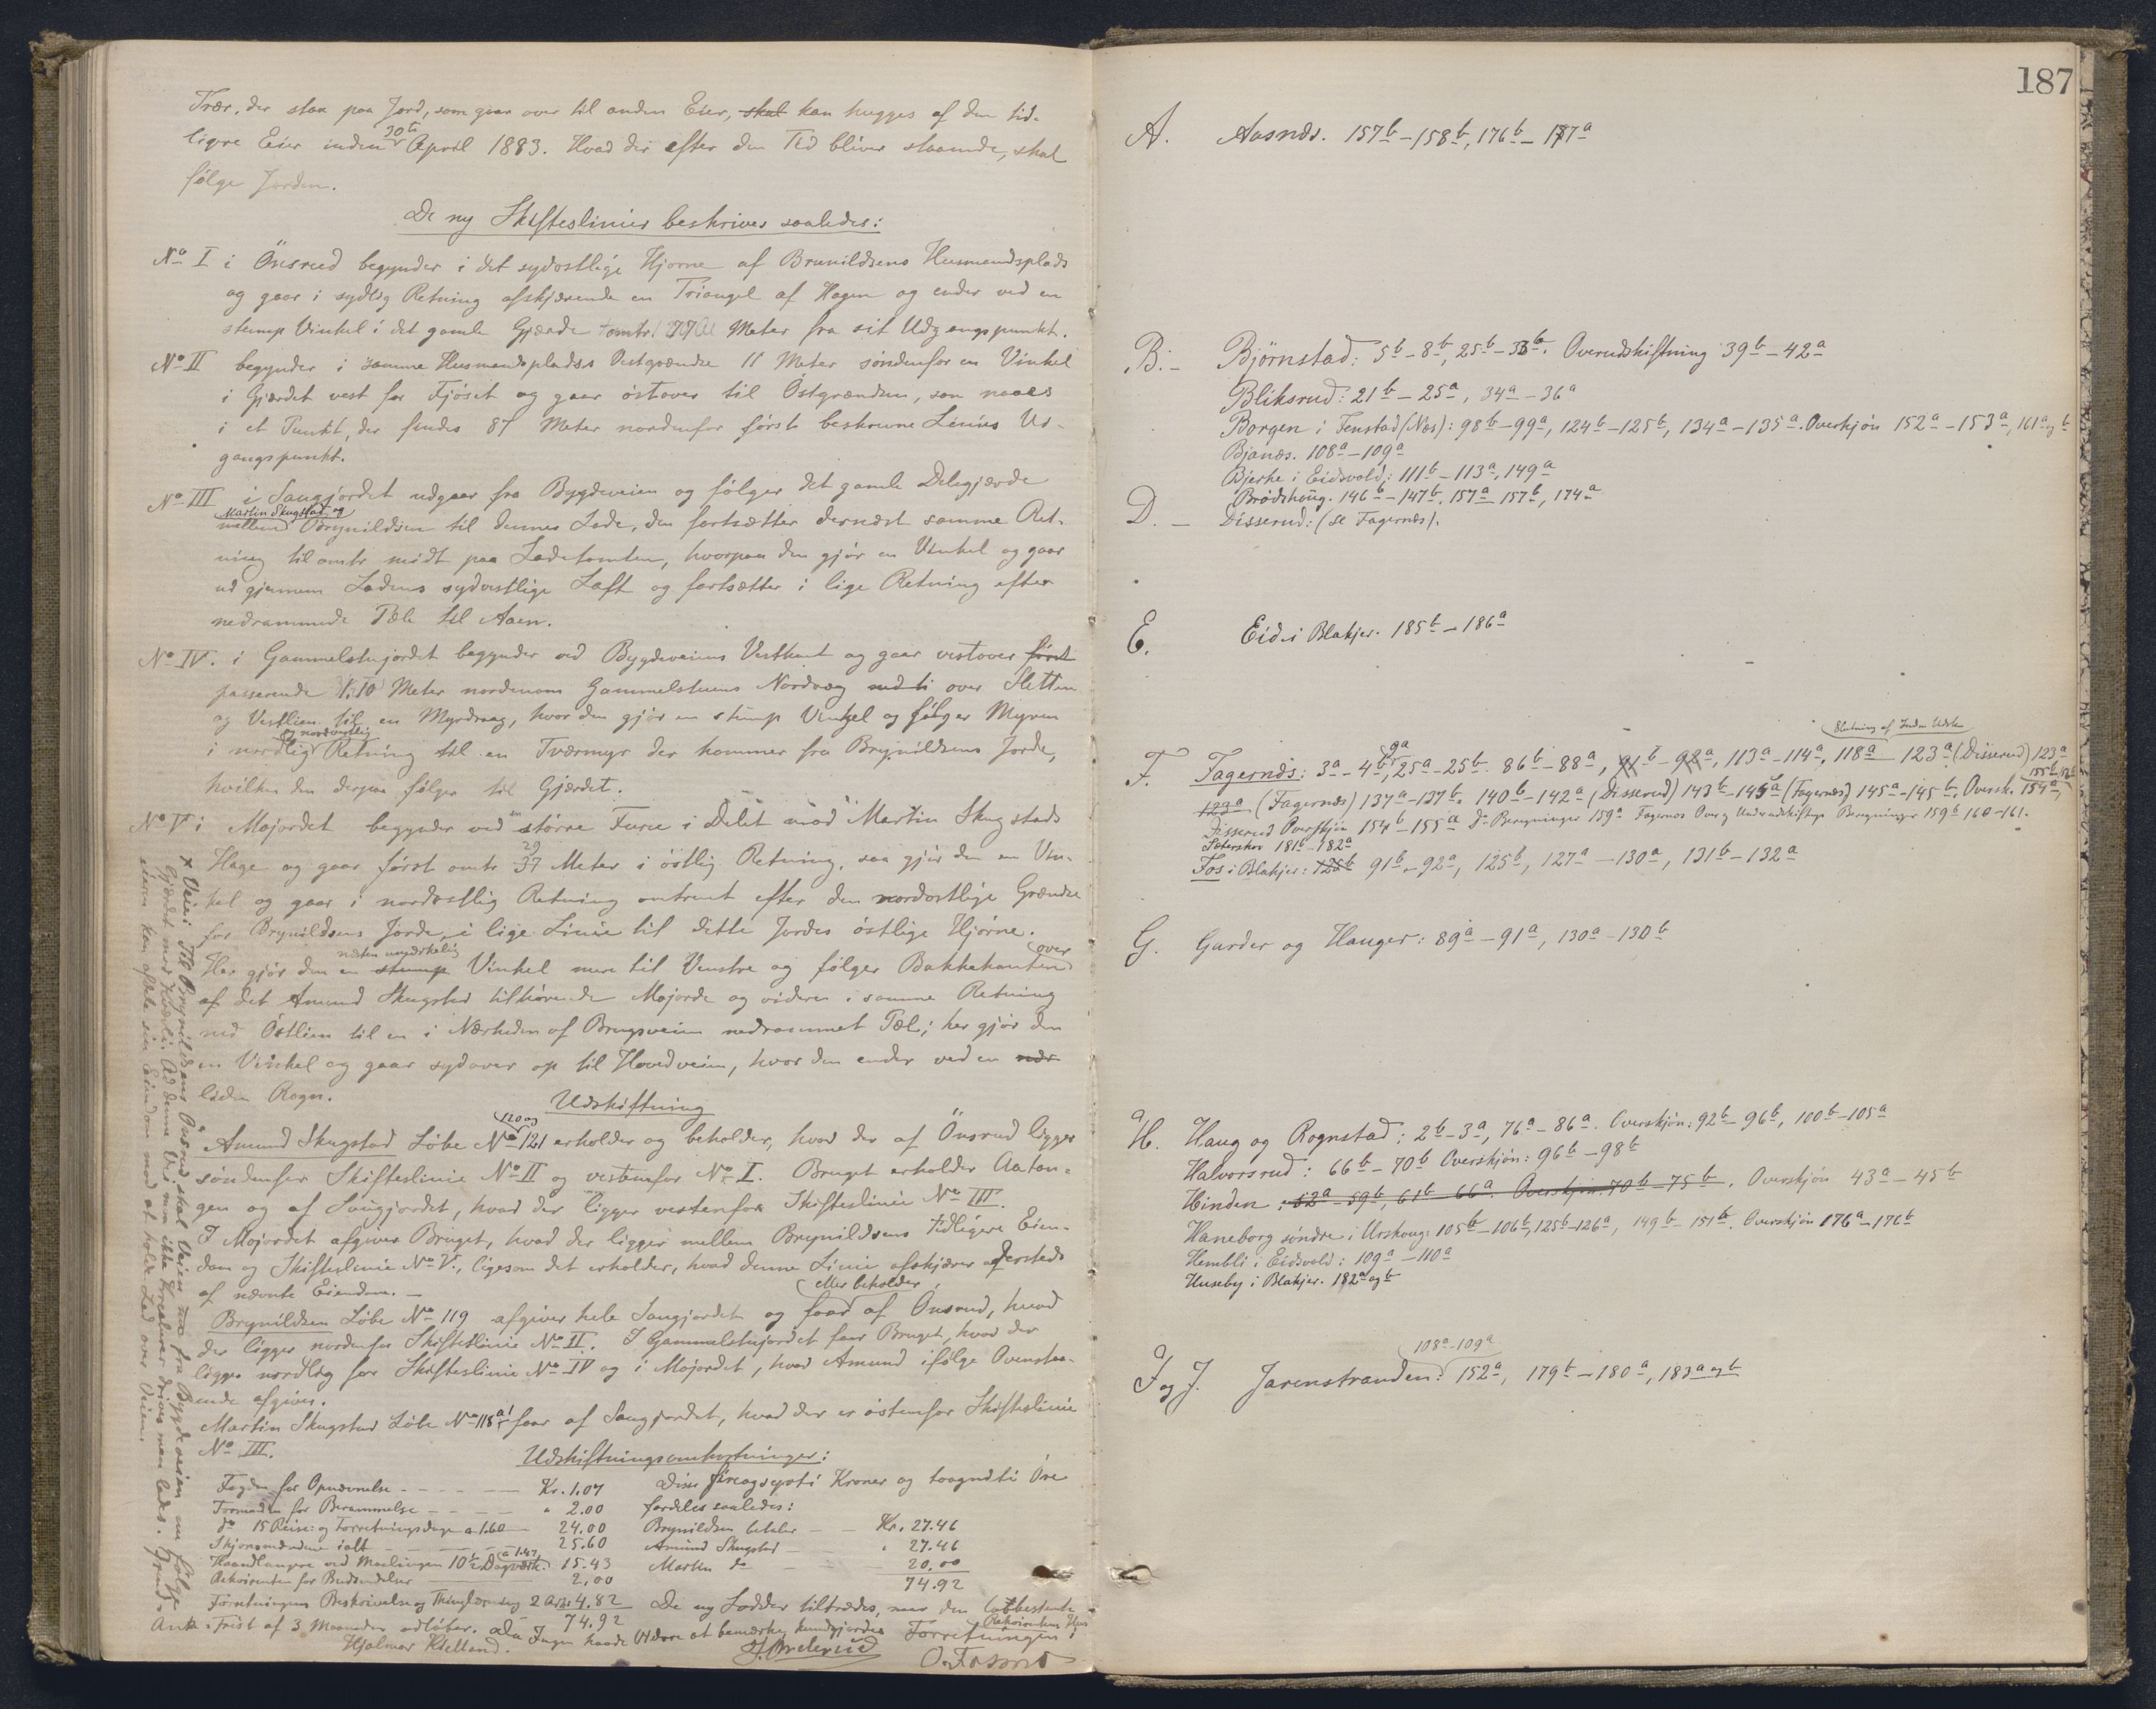 Trær, der staa paa Jord, som gaar over til anden Eier, skal kan hugges af den tid-
ligere Eier inden 30te April 1883. Hvad der efter den Tid bliver staaende, skal
følge Jorden.
De ny Skifteslinier beskrives saaledes:
No I i Önsrud begynder i det sydostlige Hjørne af Brynildsens Husmandsplads
og gaar i sydlig Retning afskjærende en Triangel af Hagen og ender ved en
stump Vinkel i det gamle Gjærde omtr. Meter fra sit Udgangspunkt.
No II begynder i samme Husmandsplads's Vestgrændse 11 Meter søndenfor en Vinkel
i Gjærdet vest for Fjöset og gaar östover til Östgrændsen, som naaes
i et Punkt, der findes 87 Meter nordenfor först beskrevne Linies Ud-
gangspunkt.
No III i Saugjordet udgaar fra Bygdeveien og følger det gamle Delegjærde
mellem Martin Skugstad og Brynildsen til dennes Lade, den fortsætter dernæst samme Ret-
ning til omtr midt paa Ladetomten, hvorpaa den gjör en Vinkel og gaar
ud gjennem Ladens sydvestlige Laft og fortsætter i lige Retning efter
nedrammede Pæle til Aaen.
No IV. i Gammelstujordet begynder ved Bygdeveiens Vestkant og gaar vestover först
passerende 1.10 Meter nordenom Gammelstuens Nordvæg over Sletten
og Vestlien til en Myrdraag, hvor den gjör en stump Vinkel og følger Myren
i nordlig og nordvestlig Retning til en Tværmyr der kommer fra Brynildsens Jorde,
hvilken den derpaa følger til Gjærdet.
No V i Mojordet begynder ved en större Furu i Delet mod Martin Skugstads
Hage og gaar først omtr 29 37 Meter i östlig Retning, saa gjör den en Vin-
kel og gaar i nordostlig Retning omtrent efter den nordostlige Grændse
for Brynildsens Jorde, i lige Linie til dette Jordes östlige Hjörne.
Her gjör den en stump næsten umærkelig Vinkel mere til Venstre og følger Bakkekanten over
af det Amund Skugstad tilhörende Mojorde og videre i samme Retning
ned Östlien til en i Nærheden af Brugsveien nedrammet Pæl; her gjör den
en Vinkel og gaar sydover op til Hovedveien, hvor den ender ved en
liden Rogn.
Udskiftning
Amund Skugstad Löbe No 120 og 121 erholder og beholder, hvad der af Önsrud ligger
søndenfor Skifteslinie No II og vestenfor No I. Bruget erholder Aatan-
gen og af Saugjordet, hvad der ligger vestenfor Skifteslinie No III.
I Mojordet afgiver Bruget, hvad der ligger mellem Brynildsens tidligere Eien-
dom og Skifteslinie No V, ligesom det erholder, hvad denne Linie afskjærer afersteds
af nævnte Eiendom. —
Brynildsen Löbe No 119 afgiver hele Saugjordet og faar eller beholder af Önsrud, hvad
der ligger nordenfor Skifteslinie No II. I Gammelstujordet faar Bruget, hvad der
ligger nordlig for Skifteslinie No IV og i Mojordet, hvad Amund ifølge Ovenstaa-
ende afgiver.
Martin Skugstad Löbe No 118 a1 faar af Saugjordet, hvad der er östenfor Skifteslinie
No III.
Udskiftningsomkostninger:
Fogden for Opnævnelse - - - - Kr. 1.07
Formanden for Berammelse - - - „ 2.00
do 15 Reise- og Forretningsdage a 1.60 — 24.00
Skjønsmændene ialt - - - 25.60
Haandlangere ved Maalingen 10½ Dagværk a 1.47 15.43
Rekvirenten for Budsendelser 2,00
Forretningens Beskrivelse og Thinglæsning 2 Ark 4.82
74.92
Disse fireogsyvti Kroner og toognitti Öre
fordeles saaledes:
Brynildsen betaler — Kr. 27.46
Amund Skugstad — „ 27.46
Martin do 20,00
74.92
De ny Lodder tiltrædes, naar den lovbestemte
Anke-Frist af 3 Maaneder udløber. Da Ingen havde Videre at bemærke kundgjordes Forretningen i Rekvirentens Hus
Hjalmar Kielland.
O. Fossnes
x Veien til Brynildsens Önsrud skal fra Bygdeveien nu følge
Gjærdet mod Ad denne Vei maa ikke Kreaturer drives men ledes. Grund-
eieren kan afdele sin Eiendom mod at holde Led over Veien.
187
A. Aasnæs. 157b – 158b, 176b – 177a
B. – Björnstad: 5b – 8b, 25b – 33b. Overudskiftning 39b – 42a
Bliksrud: 21b – 25a, 34a – 36a
Borgen i Fenstad (Næs): 98b – 99a, 124b – 125b, 134a – 135a. Overskjön 152a – 153a, 161a og b
Bjanes. 108a – 109a
Bjerke i Eidsvold: 111b – 113a, 149a
Brødshaug. 146b – 147b, 157a 157b, 174a
D. – Disserud: (se Fagernæs).
E. Eid i Blakjer. 185b – 186a
Slutning af Indre Udsk
F. Fagernæs: 3a – 4b, 9a 25a – 25b. 86b – 88a, 91b – 92a, 113a – 114a, 118a – 123a (Disserud) 123a
123a (Fagernæs) 137a – 137b. 140b – 142a (Disserud) 143b – 145a (Fagernæs) 145a – 145b. Oversk. 154a, 155b
Disserud Overskjön 154b – 155a do Beregninger 159a Fagernæs Over og Underudskiftnge Beregninger 159b 160 – 161.
Säterskov 181b – 182a
Fos i Blakjer: 125b 91b – 92a, 125b, 127a – 130a, 131b – 132a
G. Garder og Hauger: 89a – 91a, 130a – 130b
H. Haug og Rognstad: 2b – 3a, 76a – 86a. Overskjön: 92b – 96b, 100b – 105a
Halvorsrud: 66b – 70b Overskjön: 96b – 98b
Hinden: 52a – 59b, 61b – 66a. Overskjön 70b – 75b. Overskjön 43a – 45b
Haneborg søndre i Urskoug: 105b – 106b, 125b – 126a, 149b – 151b. Overskjön 176a – 176b
Hembli i Eidsvold: 109a – 110a
Huseby i Blakjer. 182a og b
108a – 109a
I og J. Jarenstranden: 152a, 179b – 180a, 183a og b